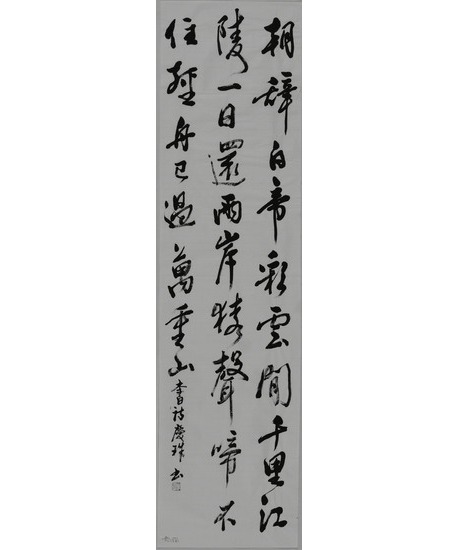 朝辞白帝彩雲間千里江
陵一日還兩岸猿聲啼不
住輕舟已過萬重山
李白詩慶珠书